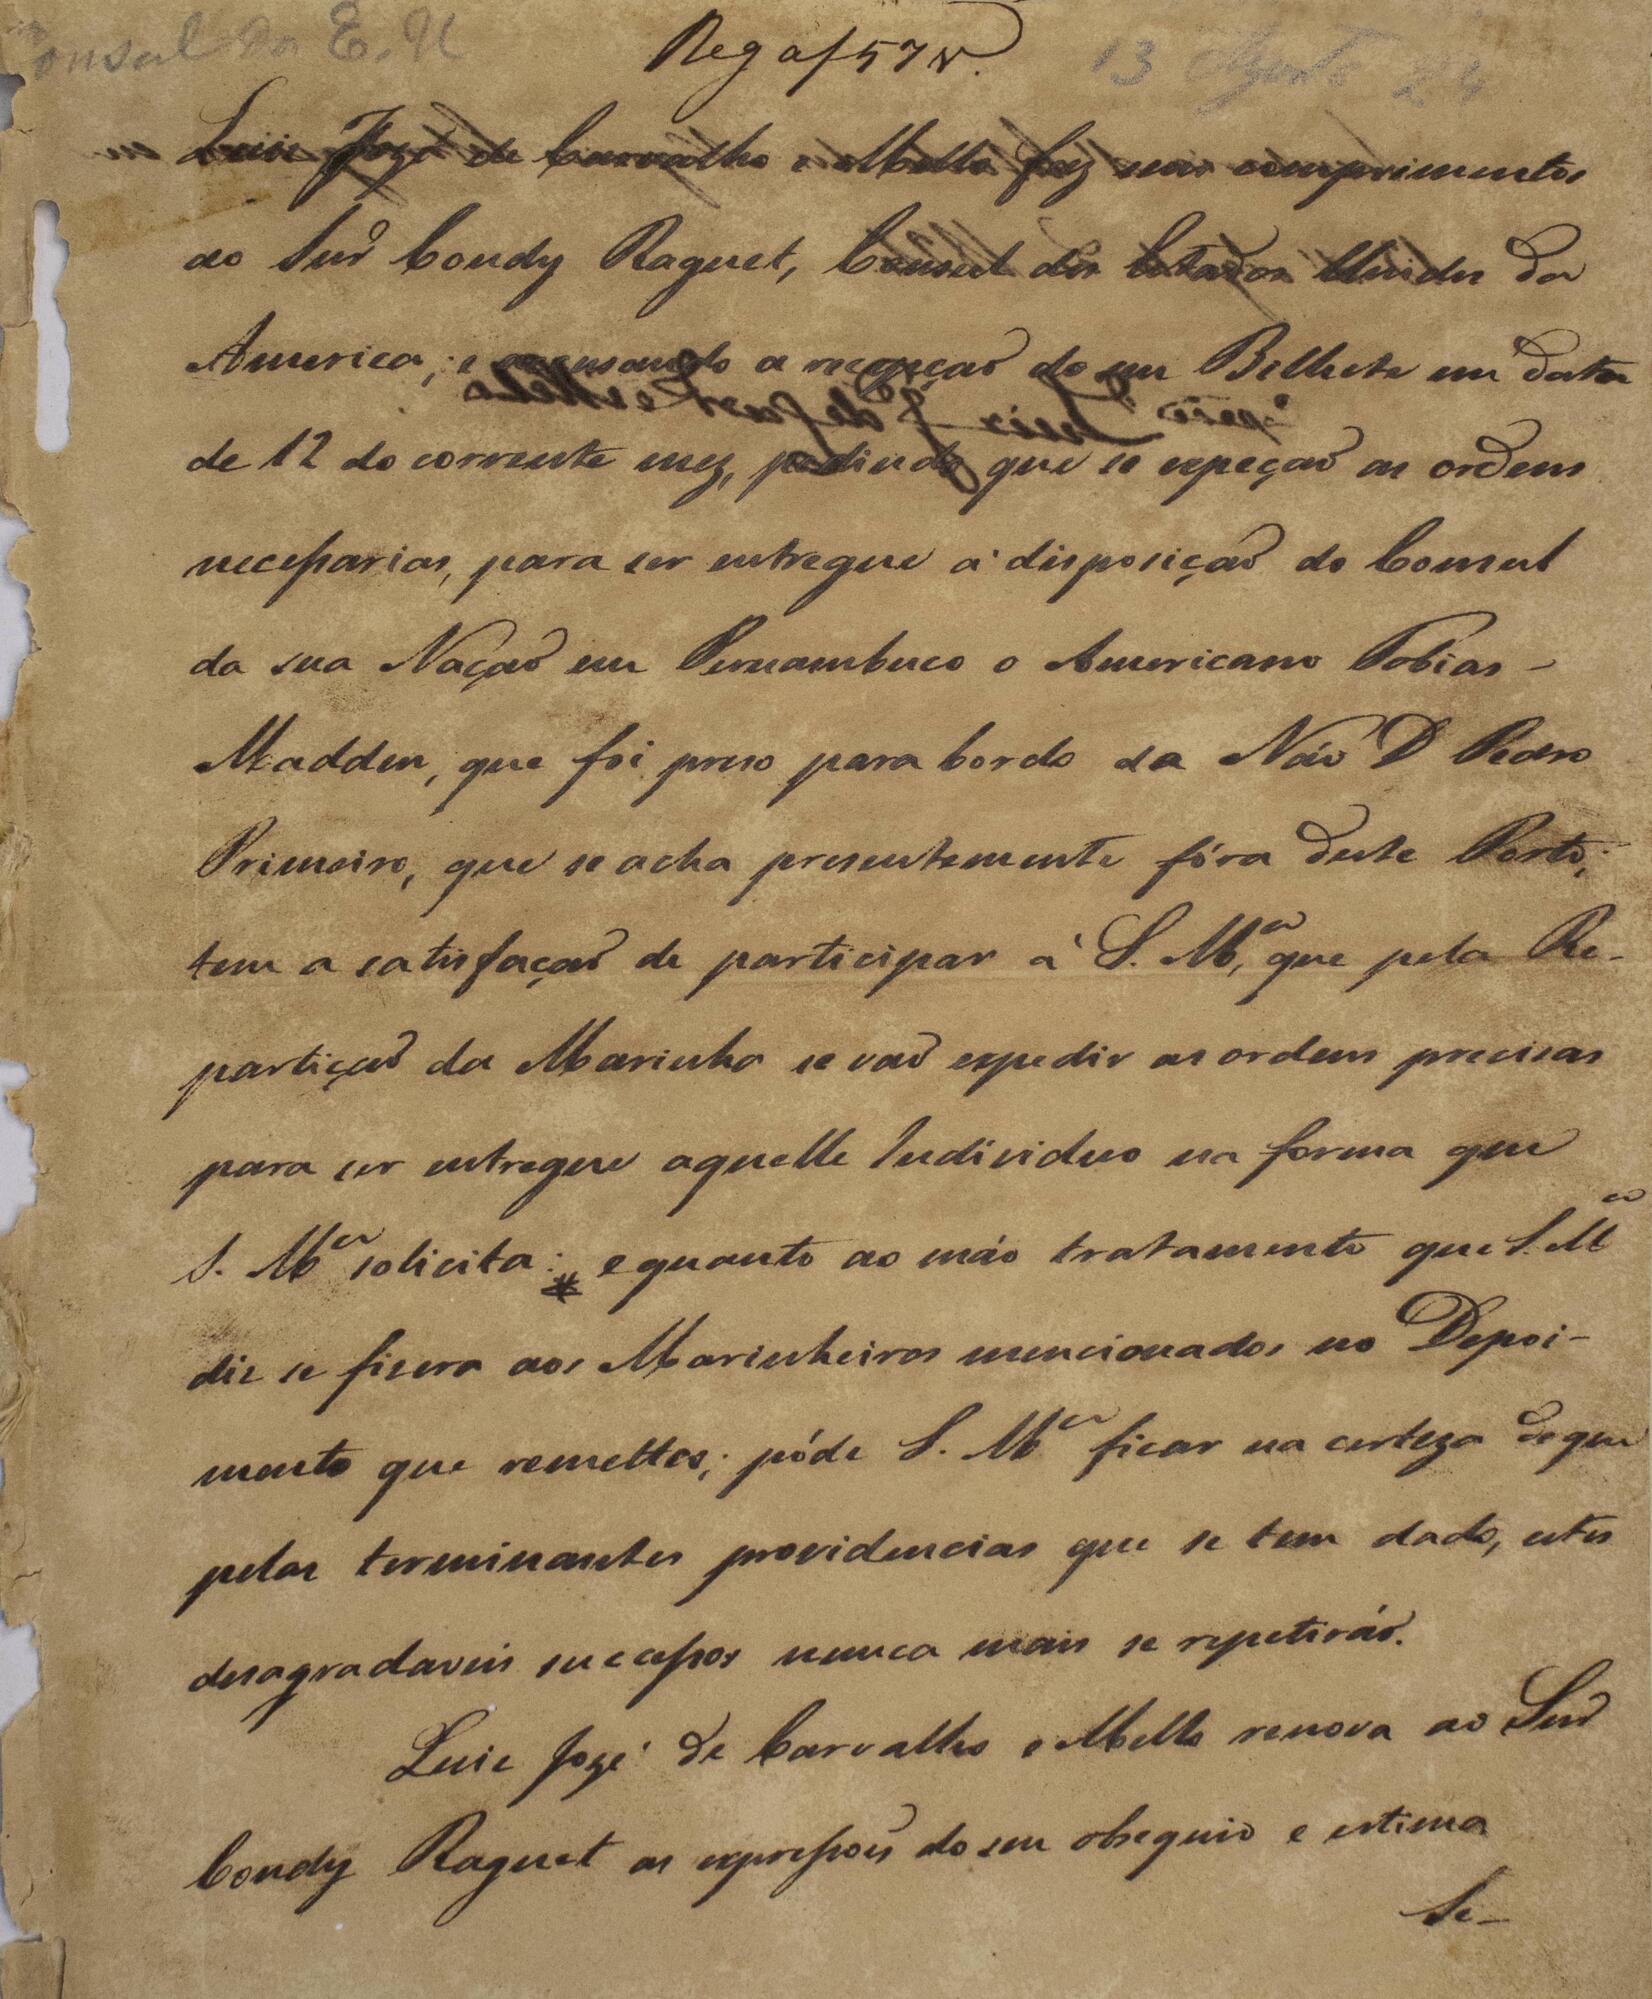 Consul dos E. U.
Reg a f 57 v.
13 Agosto 24
Luiz Jozé de Carvalho e Mello faz seus comprimentos
ao Snr̃ Condy Raguet, Consul dos Estados Unidos da
America; e accusando a recepçaõ do seu Bilhete em data
de 12 do corrente mez, pedindo que se expeçaõ as ordens
necessarias, para ser entregue á disposiçaõ do Consul
da sua Naçaõ em Pernambuco o Americano Tobias
Madden, que foi preso para bordo da Náo D Pedro
Primeiro, que se acha presentemente fóra deste Porto;
tem a satisfaçaõ de participar á S. M.ce, que pela Re-
partiçaõ da Marinha se vaõ expedir as ordens precisas
para ser entregue aquelle Individuo na forma que
S. M.ce solicita: * e quanto ao máo tratamento que S. M.ce
diz se fizera aos Marinheiros mencionados no Depoi-
mento que remetteo; póde S. M.ce ficar na certeza de que
pelas terminantes providencias que se tem dado, estes
desagradaveis successos nunca mais se repetiráõ.
Luiz Jozé de Carvalho e Mello renova ao Snr̃
Condy Raguet as expressoẽs do seu obsequio e estima
Se-